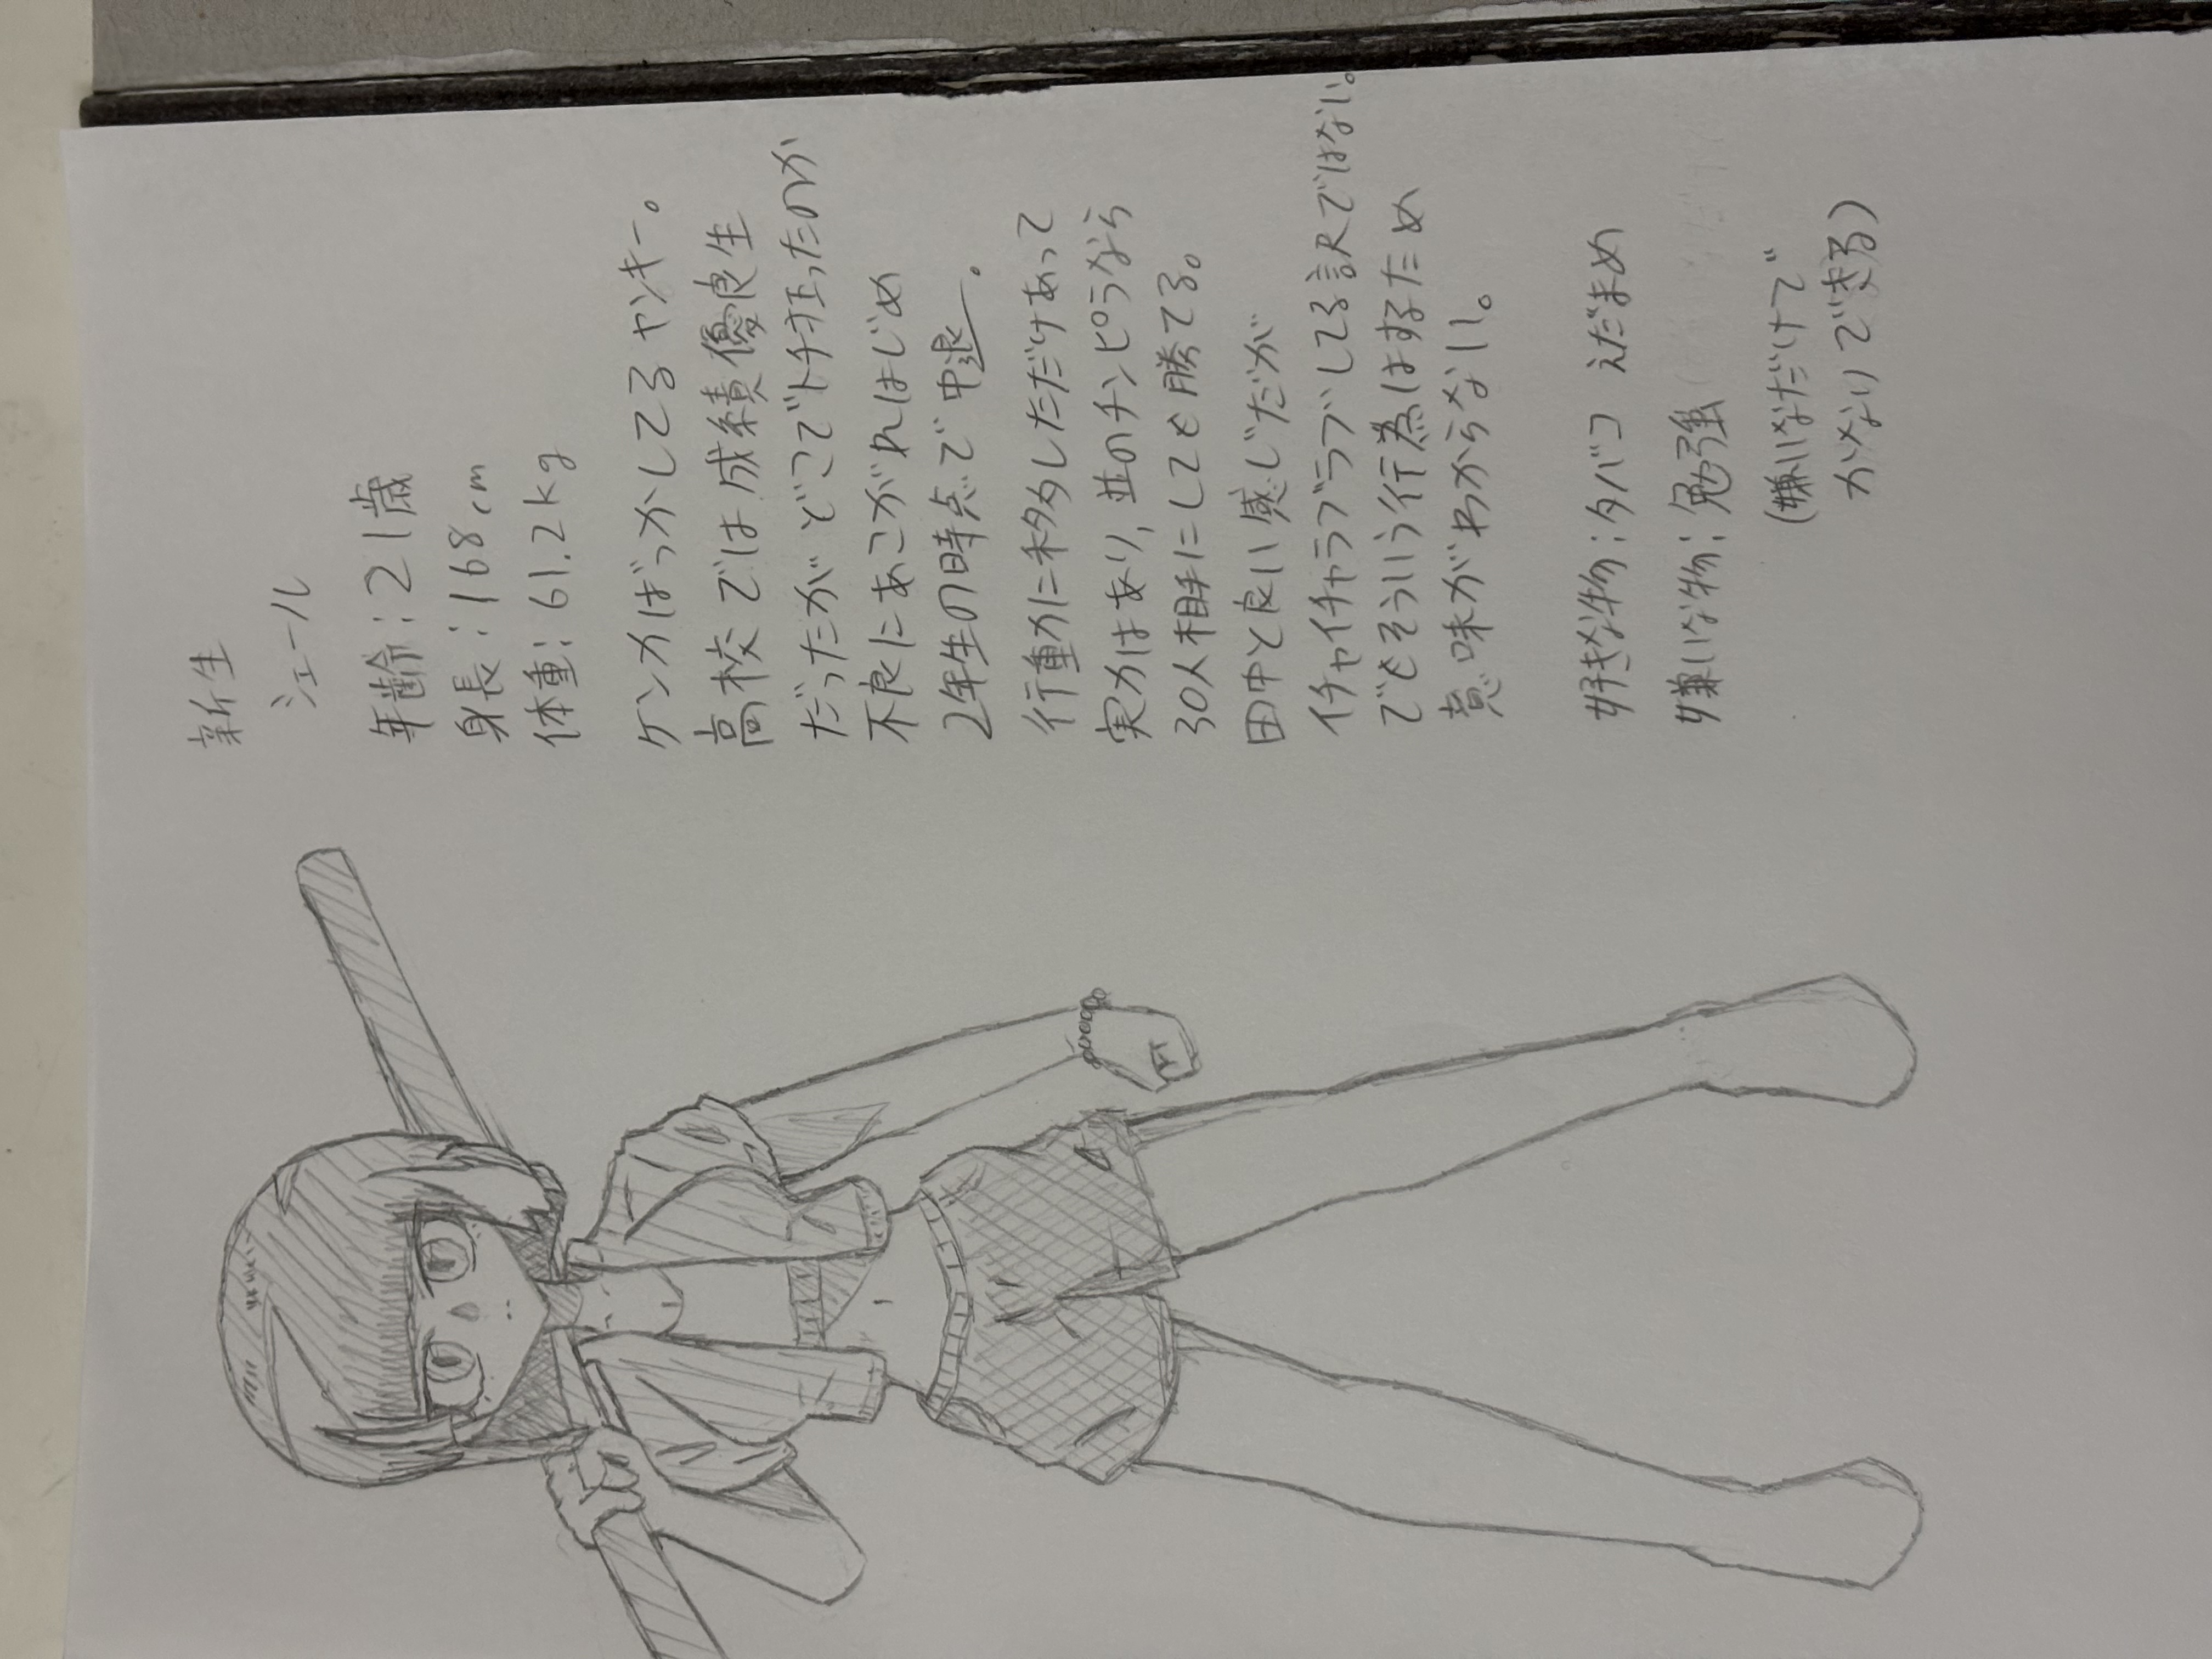 新生
シェール
年齢：21歳
身長：168cm
体重：61.2kg
ケンカばっかしてるヤンキー。
高校では成績優良生
だったがどこでトチ狂ったのか
不良にあこがれはじめ
2年生の時点で中退。
行動に移しただけあって
実力はあり、並のチンピラなら
30人相手にしても勝てる。
田中と良い感じだが
イチャイチャラブラブしてる訳ではない。
でもそういう行為はするため
意味がわからない。
好きな物：タバコ えだまめ
嫌いな物：勉強
(嫌いなだけで
かなりできる)